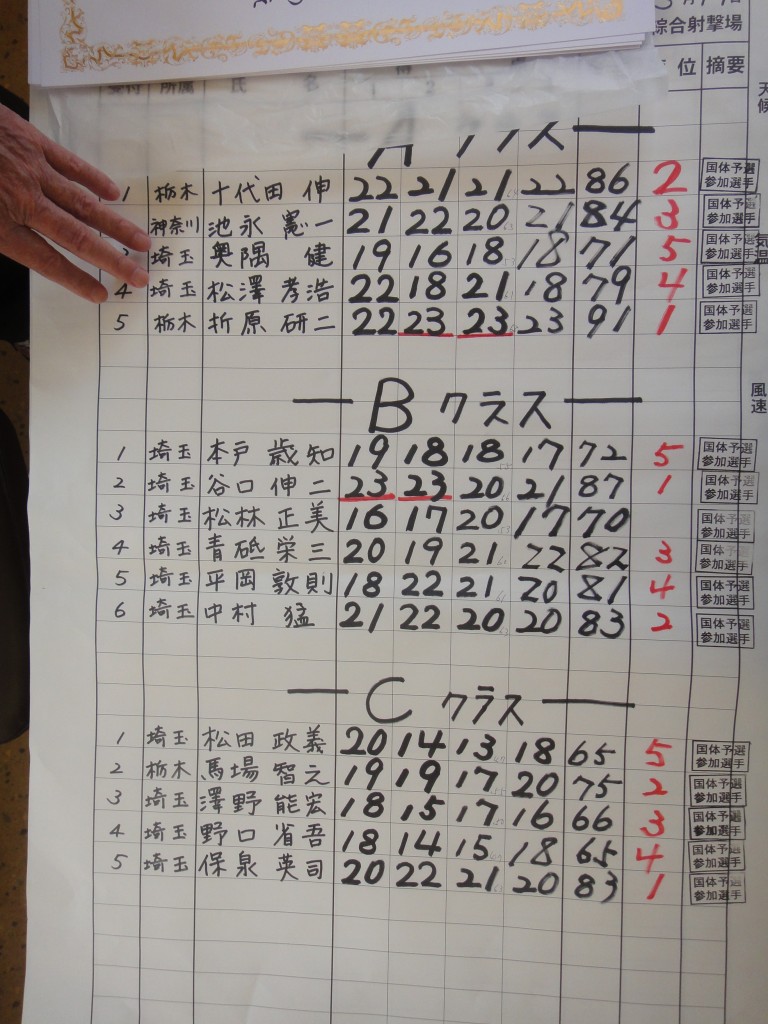 綜合射撃場
位 摘要
天候
クラス
1 栃木 十代田 伸 22 21 21 22 86 2 国体予選参加選手
神奈川 池永 憲一 21 22 20 21 84 3 国体予選参加選手
3 埼玉 奥隅 健 19 16 18 18 71 5 国体予選参加選手
気温
4 埼玉 松澤 孝浩 22 18 21 18 79 4 国体予選参加選手
5 栃木 折原 研二 22 23 23 23 91 1 国体予選参加選手
風速
B クラス
1 埼玉 本戸 歳知 19 18 18 17 72 5 国体予選参加選手
2 埼玉 谷口 伸二 23 23 20 21 87 1 国体予選参加選手
3 埼玉 松林 正美 16 17 20 17 70 国体予選参加選手
4 埼玉 青砥 栄三 20 19 21 22 82 3 国体予選参加選手
5 埼玉 平岡 敦則 18 22 21 20 81 4 国体予選参加選手
6 埼玉 中村 猛 21 22 20 20 83 2 国体予選参加選手
C クラス
1 埼玉 松田 政義 20 14 13 18 65 5 国体予選参加選手
2 栃木 馬場 智之 19 19 17 20 75 2 国体予選参加選手
3 埼玉 澤野 能宏 18 15 17 16 66 3 国体予選参加選手
4 埼玉 野口 省吾 18 14 15 18 65 4 国体予選参加選手
5 埼玉 保泉 英司 20 22 21 20 83 1 国体予選参加選手